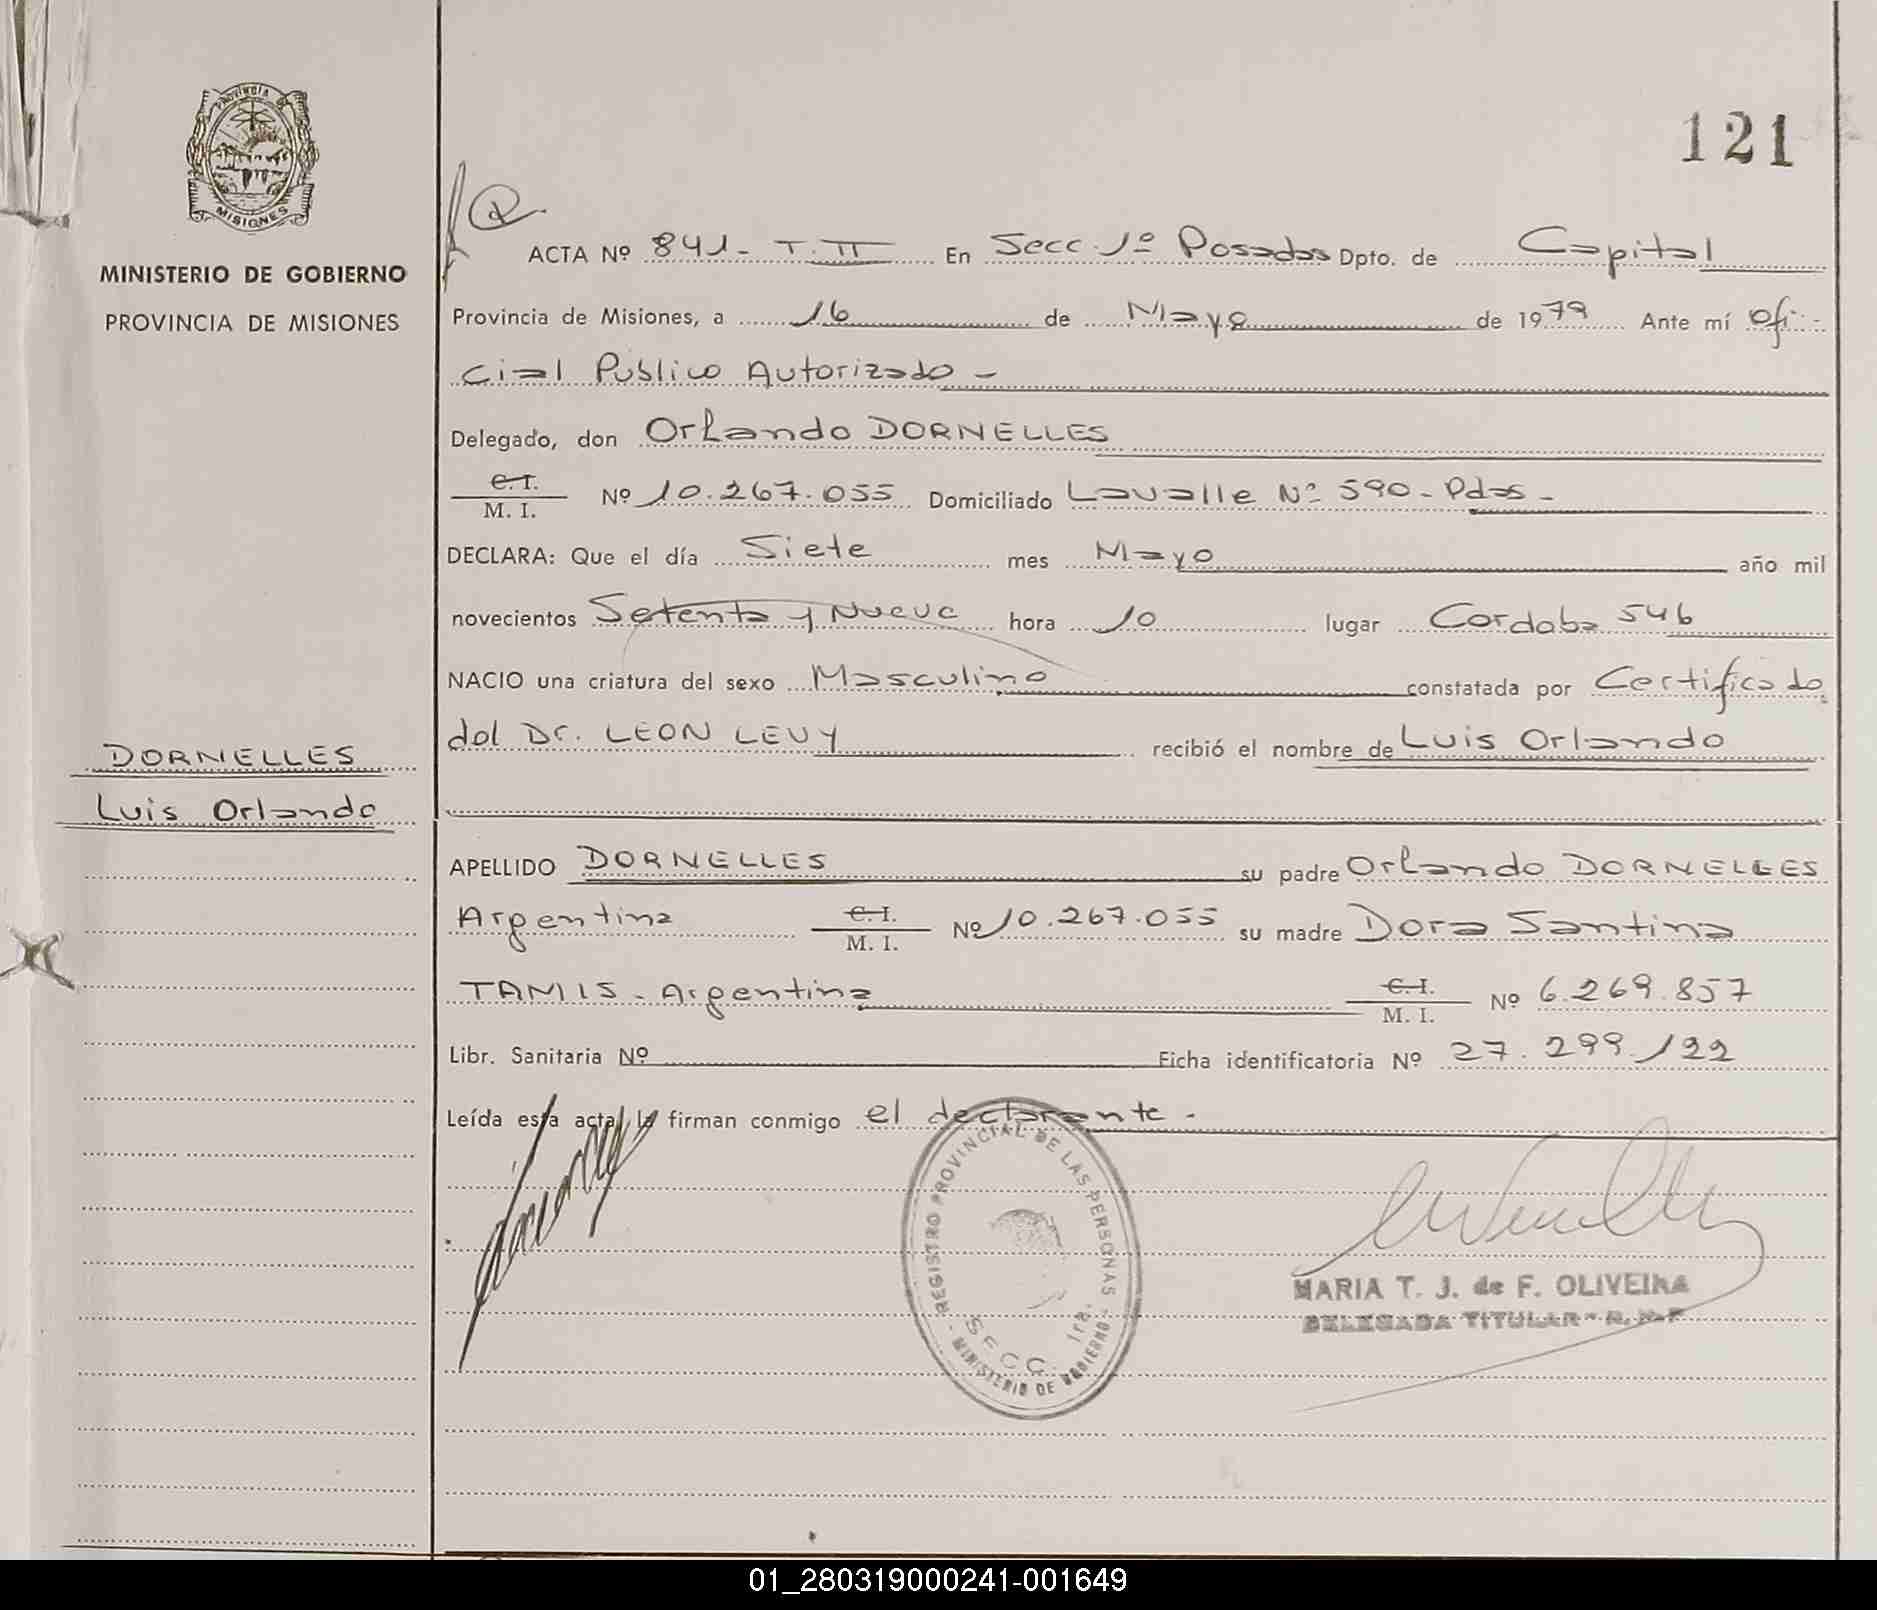 PROVINCIA DE
MISIONES
MINISTERIO DE GOBIERNO
PROVINCIA DE MISIONES
DORNELLES
Luis Orlando
121
ACTA Nº 841- T. II En Secc. 1º Posadas Dpto. de Capital
Provincia de Misiones, a 16 de Mayo de 1979 Ante mí Ofi-
cial Público Autorizado -
Delegado, don Orlando DORNELLES
C. I.
M. I. Nº 10.267.055 Domiciliado Lavalle Nº 590 - Pdas -
DECLARA: Que el día Siete mes Mayo año mil
novecientos Setenta y Nueve hora 10 lugar Cordoba 546
NACIO una criatura del sexo Masculino constatada por Certificado
del Dr. LEON LEVY recibió el nombre de Luis Orlando
APELLIDO DORNELLES su padre Orlando DORNELLES
Argentina C. I. M. I. Nº 10.267.055 su madre Dora Santina
TAMIS - Argentina C. I. M. I. Nº 6.269.857
Libr. Sanitaria Nº Ficha identificatoria Nº 27.299.122
Leída esta acta, la firman conmigo el declarante -
REGISTRO PROVINCIAL DE LAS PERSONAS
SECC. 1ra.
MINISTERIO DE GOBIERNO
MARIA T. J. de F. OLIVEIRA
DELEGADA TITULAR - R. N. P
01_280319000241-001649